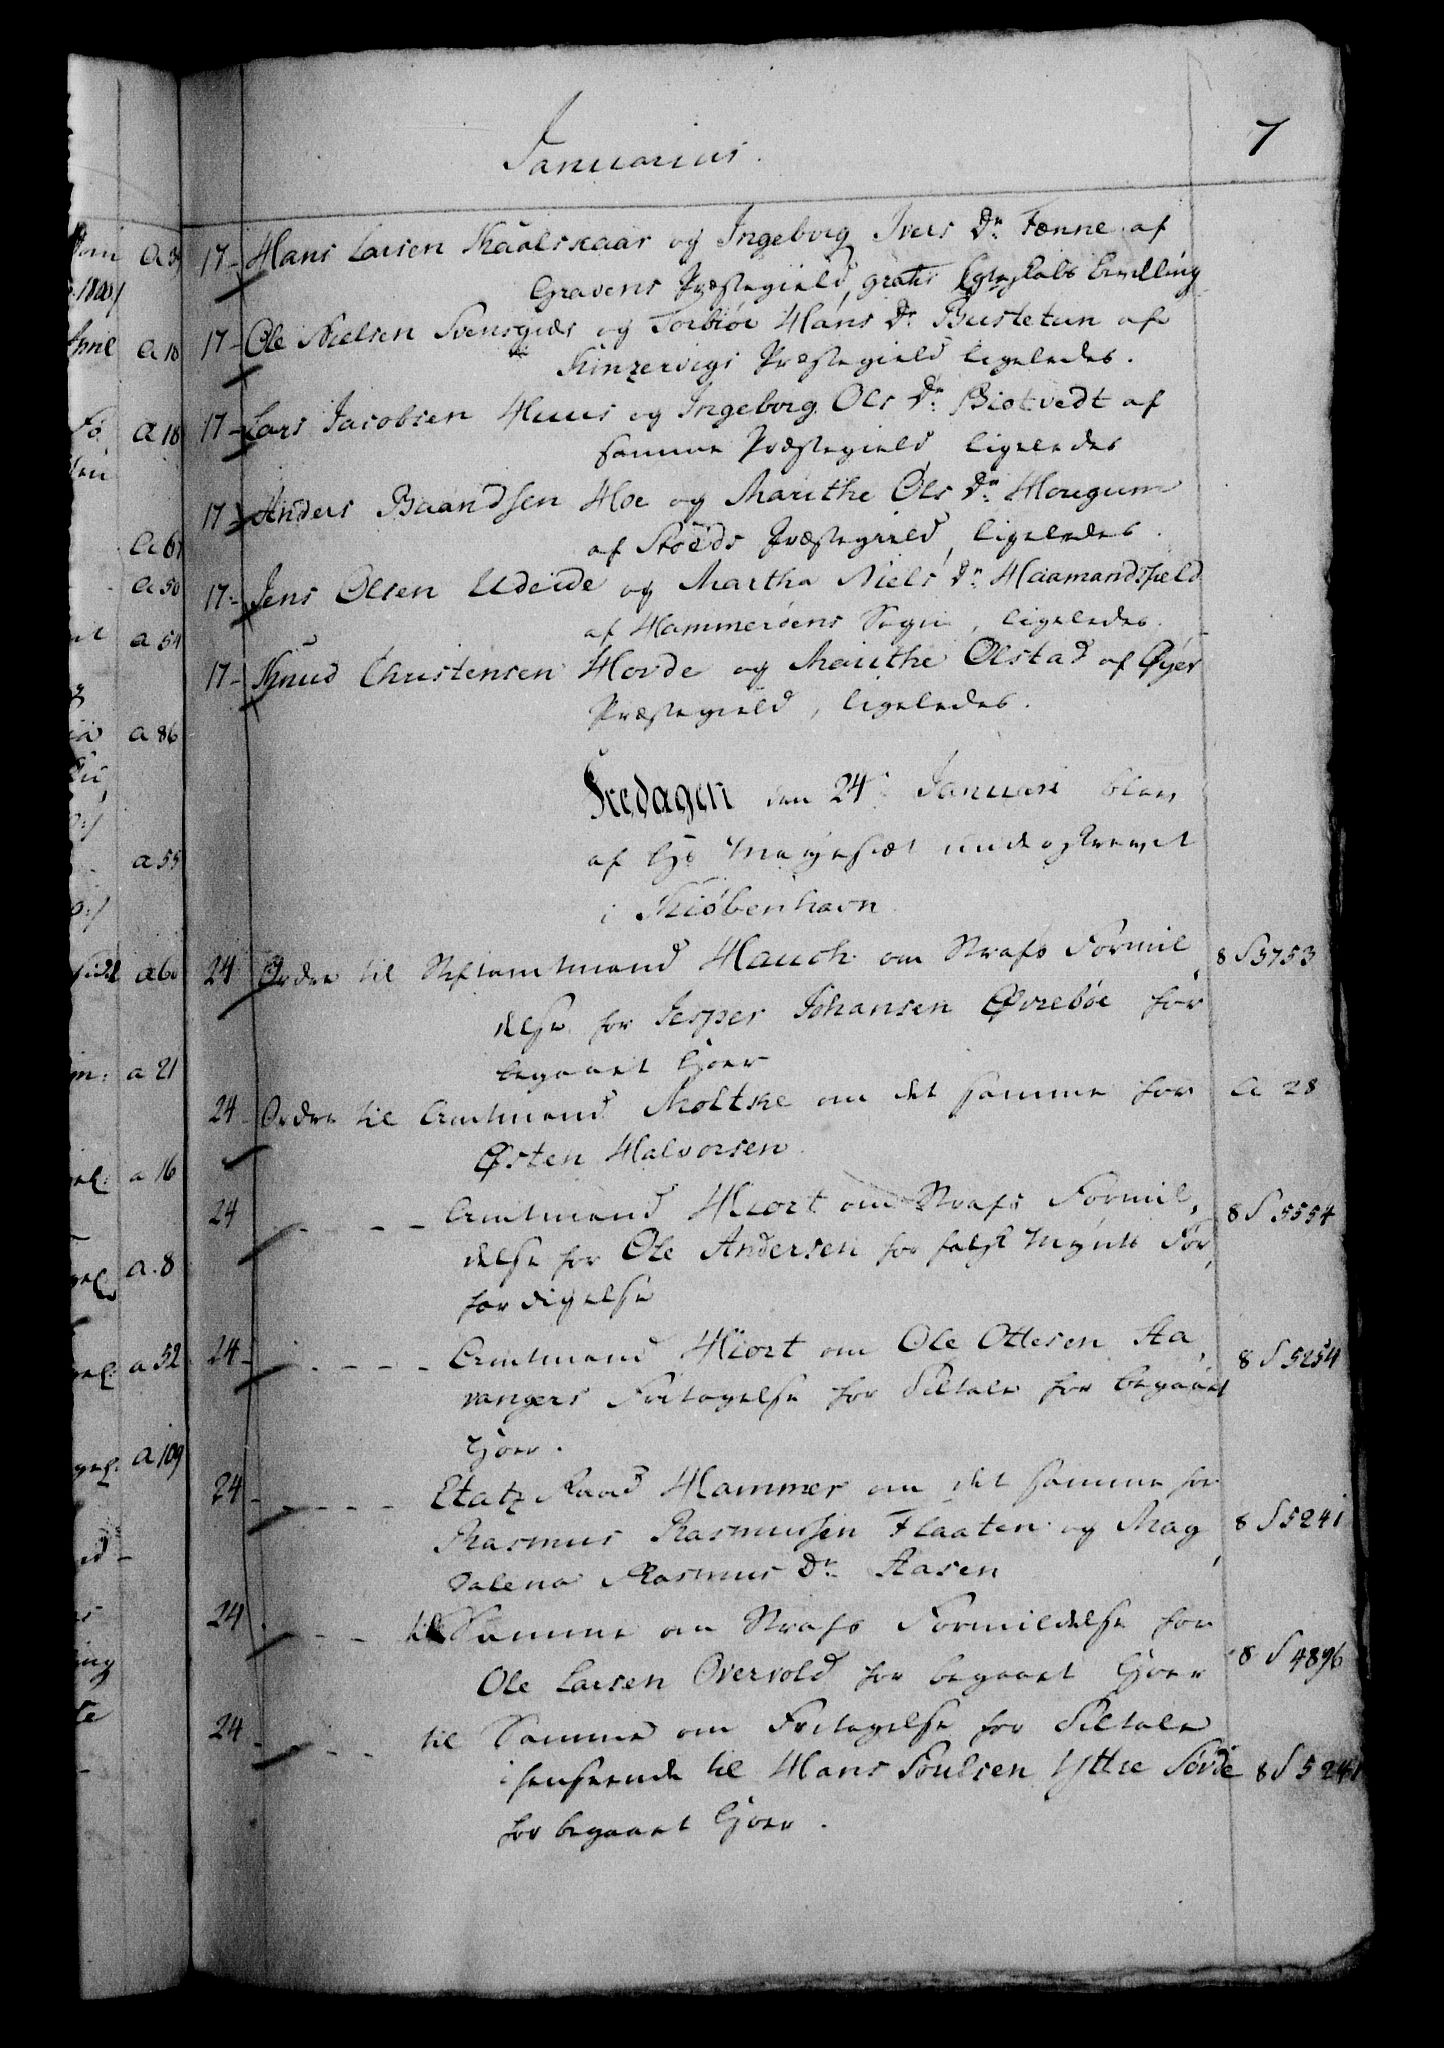 Januarius.
7
17- Hans Larsen Skaalskaar og Ingeborg Ivers Dr. Tenne af
Gravens Præstegield, gratis Egteskabs Bevilling
17- Ole Nielsen og Torbiør Hans Dr. Bustetun af
Kinzervigs Præstegield ligeledes.
17- Lars Jacobsen Huus og Ingeborg Ols Dr. Biotvedt af
samme Præstegield ligeledes
17- Anders Baardsen Hoe og Marithe Ols Dr.
af Stods Præstegield, ligeledes.
17- Jens Olsen Udeide og Martha Niels Dr.
af Hammerøens Sogn, ligeledes.
17- Knud Christensen Hovde og Marithe Olstad af Øyer
Præstegield, ligeledes.
Fredagen den 24de Januari blev
af Hs Mayestæt underskrevet
i Kiøbenhavn
24 Ordre til Stiftamtmand Hauch om Strafs Formil 8 S 5753
delse for Jesper Johansen Øvrebøe for
begaaet Hoer
24 Ordre til Amtmand Moltke om det samme for a 28
Østen Halvorsen.
24 - - - Amtmand Hiort om Strafs Formil, 8 S 5554
delse for Ole Andersen for falsk Mynts For,
færdigelse
24- - - - Amtmand Hiort om Ole Ottesen Sta, 8 S 5254
vangers Fritagelse for Tiltale for begaaet
Hoer.
24 - - - - Etatz Raad Hammer om det samme for
Rasmus Rasmussen Flaaten og Mag 8 S 5241
dalena Rasmus Dr. Aasen
24 - - til Samme om Strafs Formildelse for
Ole Larsen Overvold for begaaet Hoer 8 S 4896
24 - - - til Samme om Fritagelse for Tiltale
i henseende til Hans Poulsen Yttre 8 S 5241
for begaaet Hoer.
a 18
a 18
a 50
a 54
a 86
a 55
a 60
a 21
a 16
a. 8
a 52
a 109